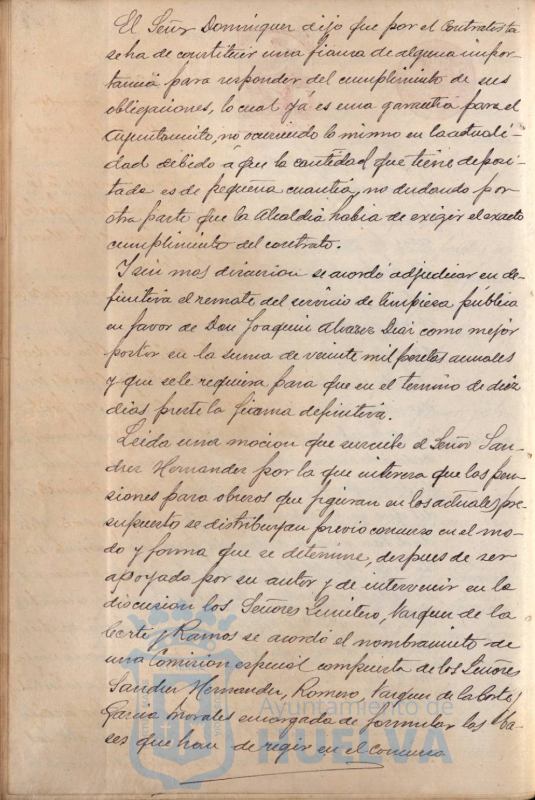 El Señr Dominguez dijo que por el Contratista
se ha de constituir una fianza de alguna impor-
tancia para responder del cumplimiento de sus
obligaciones, lo cual yá es una garantia para el
Ayuntamito, no ocurriendo lo mismo en la actuali-
dad debido á que la cantidad que tiene deposi-
tada es de pequeña cuantia, no dudando por
otra parte que la Alcaldia habia de exigir el exacto
cumplimiento del contrato.
Y sin mas discusion se acordó adjudicar en de-
finitiva el remate del servicio de limpieza pública
en favor de Don Joaquin Alvarez Diaz como mejor
postor en la suma de veinte mil pesetas anuales
y que se le requiera para que en el termino de diez
dias preste la fianza definitiva.
Leida una mocion que suscribe el Señor San-
chez Hernandez por la que interesa que las pen-
siones para obreros que figuran en los actuales pre-
supuesto se distribuyan previo concurso en el mo-
do y forma que se determine, despues de ser
apoyada por su autor y de intervenir en la
discusion los Señores Quintero, Vazquez de la
Corte y Ramos se acordó el nombramiento de
una Comision especial compuesta de los Señores
Sanchez Hernandez, Romero, Vazquez de la Corte y
Garcia Morales encargada de formular las ba-
ses que han de regir en el Concurso
Ayuntamiento de
HUELVA